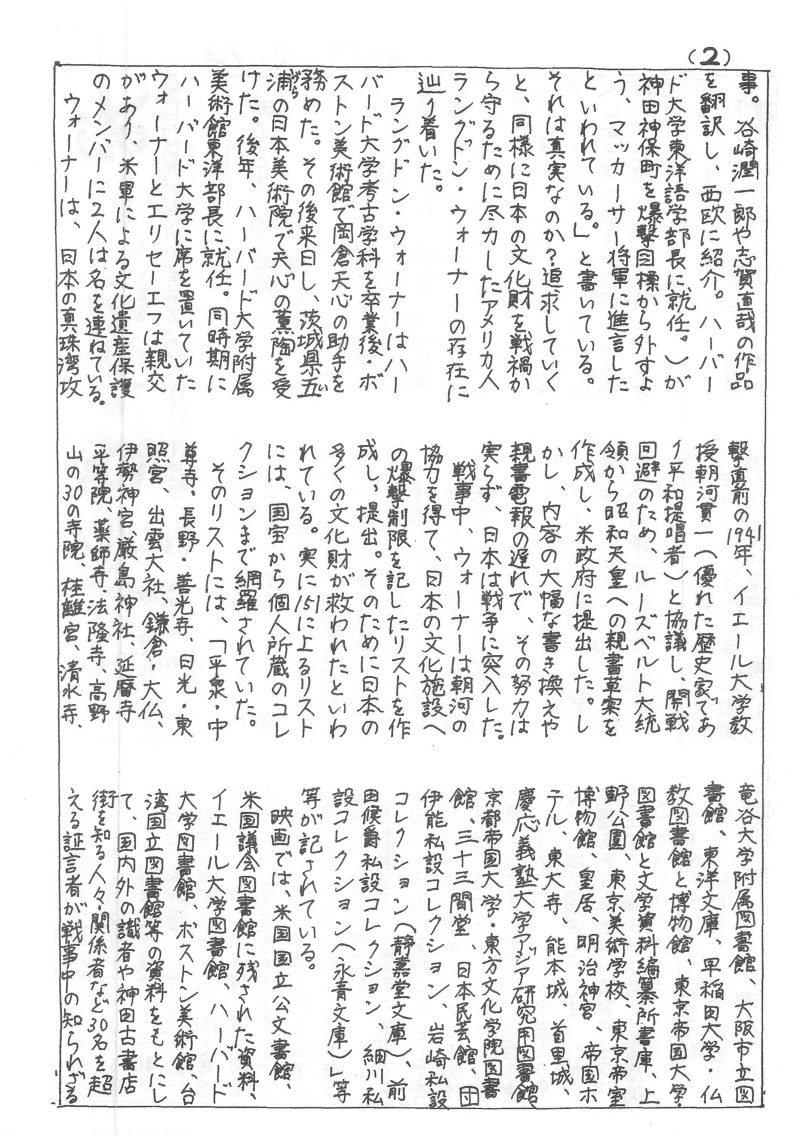 (2)
事。谷崎潤一郎や志賀直哉の作品
を翻訳し、西欧に紹介。ハーバー
ド大学東洋語学部長に就任。)が
神田神保町を爆撃目標から外すよ
う、マッカーサー将軍に進言した
といわれている。」と書いている。
それは真実なのか?追求していく
と、同様に日本の文化財を戦禍か
ら守るために尽力したアメリカ人
ラングドン・ウォーナーの存在に
辿り着いた。
ラングドン・ウォーナーはハー
バード大学考古学科を卒業後・ボ
ストン美術館で岡倉天心の助手を
務めた。その後来日し、茨城県五
浦の日本美術院で天心の薫陶を受
けた。後年、ハーバード大学附属
美術館東洋部長に就任。同時期に
ハーバード大学に席を置いていた
ウォーナーとエリセーエフは親交
があり、米軍による文化遺産保護
のメンバーに2人は名を連ねている。
ウォーナーは、日本の真珠湾攻
撃直前の1941年、イエール大学教
授朝河貫一(優れた歴史家であ
り平和提唱者)と協議し、開戦
回避のため、ルーズベルト大統
領から昭和天皇への親書草案を
作成し、米政府に提出した。し
かし、内容の大幅な書き換えや
親書電報の遅れで、その努力は
実らず、日本は戦争に突入した。
戦事中、ウォーナーは朝河の
協力を得て、日本の文化施設へ
の爆撃制限を記したリストを作
成し、提出。そのために日本の
多くの文化財が救われたといわ
れている。実に151に上るリスト
には、国宝から個人所蔵のコレ
クションまで網羅されていた。
そのリストには、「平泉・中
尊寺。長野・善光寺、日光・東
照宮、出雲大社、鎌倉・大仏、
伊勢神宮、厳島神社、延暦寺
平等院、薬師寺、法隆寺、高野
山の30の寺院、桂離宮、清水寺、
竜谷大学附属図書館、大阪市立図
書館、東洋文庫、早稲田大学・仏
教図書館と博物館、東京帝国大学・
図書館と文学資料編纂所書庫、上
野公園、東京美術学校、東京帝室
博物館、皇居、明治神宮、帝国ホ
テル、東大寺、熊本城、首里城、
慶応義塾大学アジア研究用図書館、
京都帝国大学・東方文化学院図書
館、三十三間堂、日本民芸館、団
伊能私設コレクション、岩崎私設
コレクション(静嘉堂文庫)、前
田侯爵私設コレクション、細川私
設コレクション(永青文庫)」等
等が記されている。
映画では、米国国立公文書館、
米国議会図書館に残された資料、
イエール大学図書館、ハーバード
大学図書館、ボストン美術館、台
湾国立図書館等の資料をもとにし
て、国内外の識者や神田古書店
街を知る人々・関係者など30名を超
える証言者が戦事中の知られざる